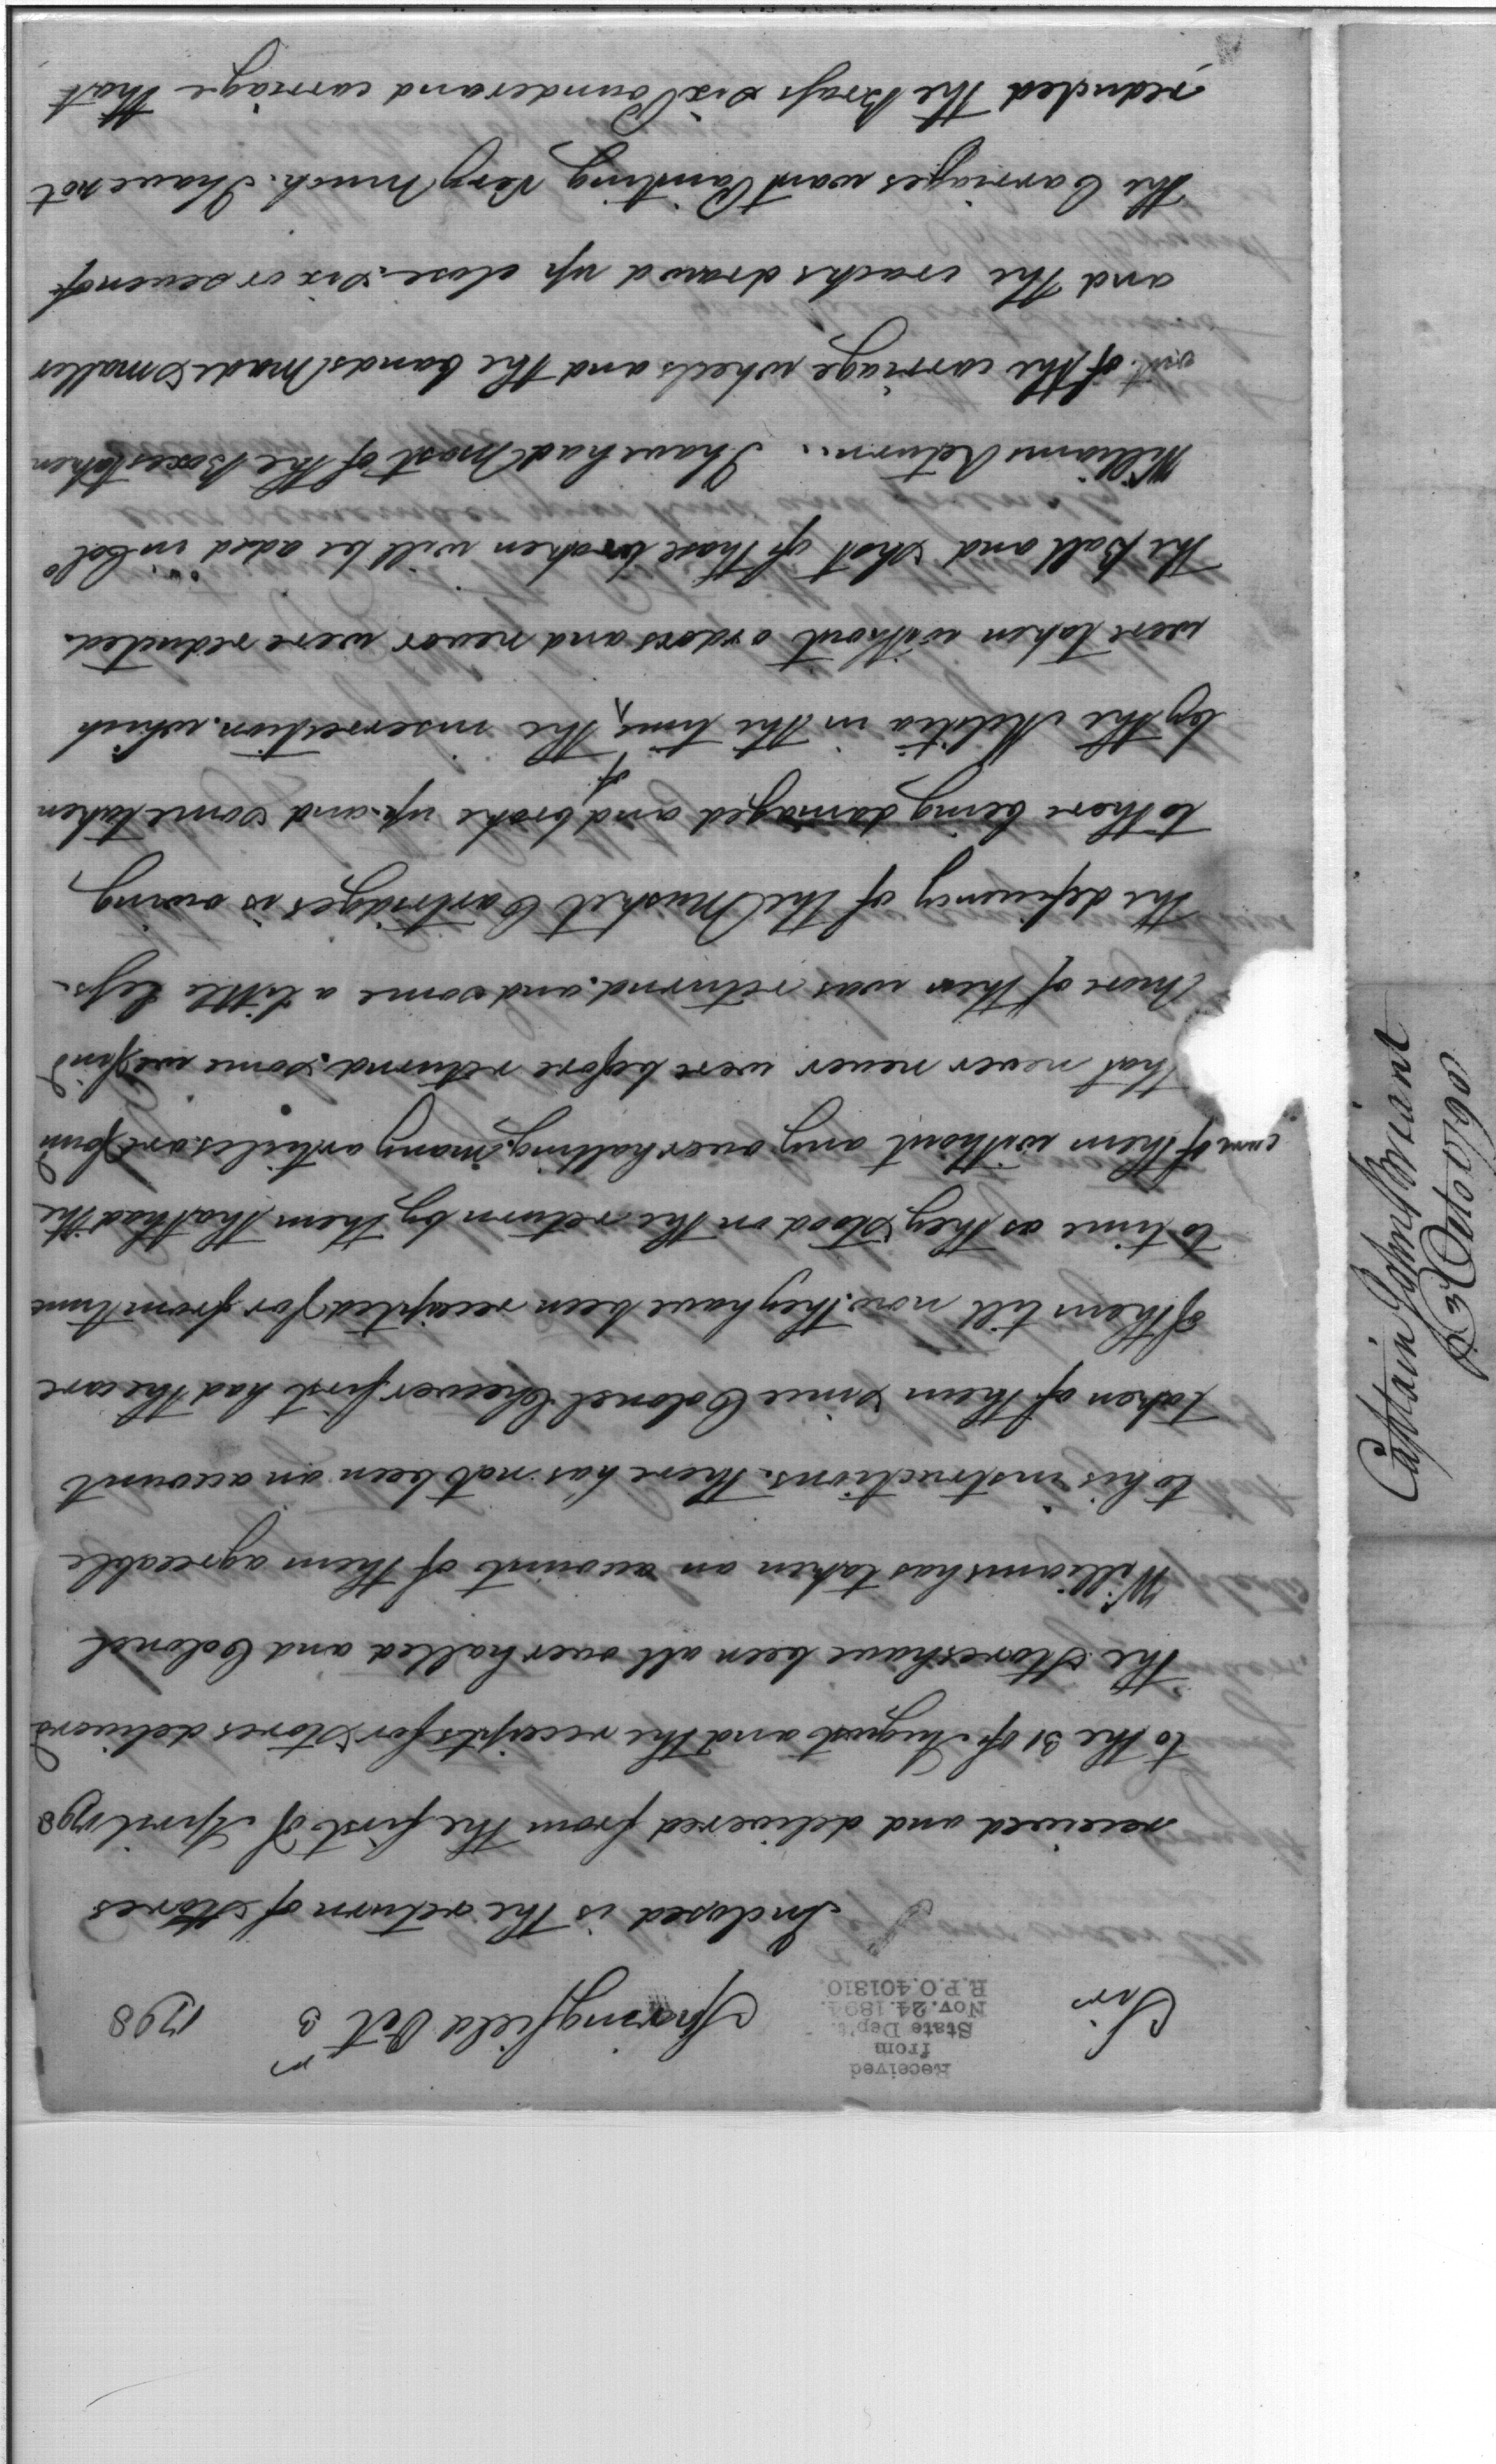 Received
from
State Dep't.
Nov. 24. 1894.
R.P.O. 401310.
Sir Springfield Oct 3 1790
Inclosed is the return of Stores
received and delivered from the first of April 1790
to the 31 of August and the receipts for Stores deliverd
The Stores have been all overhalled and Colonel
Williams has taken an account of them agreeable
to his instructions. there has not been an account
taken of them Since Colonel Cheever first had the care
of them till now. they have been receipted for from time
to time as they Stood on the return by them that had the
care of them without any overhalling. many articles are foun
that never never were before returnd. Some we find
more of then was returnd. and some a little Less.
The defiuency of the Musket Cartridges is owing
to there being damaged and broke up and some taken
by the Militia in the time of the inserrection. which
were taken without orders and never were reducted.
The Ball and Shot of those broken will be aded in Colo
Williams Return. I have had Most of the Boxes taken
out of the carriage wheels and the bands Made Smaller
and the cracks drawd up close. Six or Seven of
the Carriages want Painting Very Much. I have not
reducted the Brass Six Pounder and carriage that
Captain John Bryant
3 Octo 1790